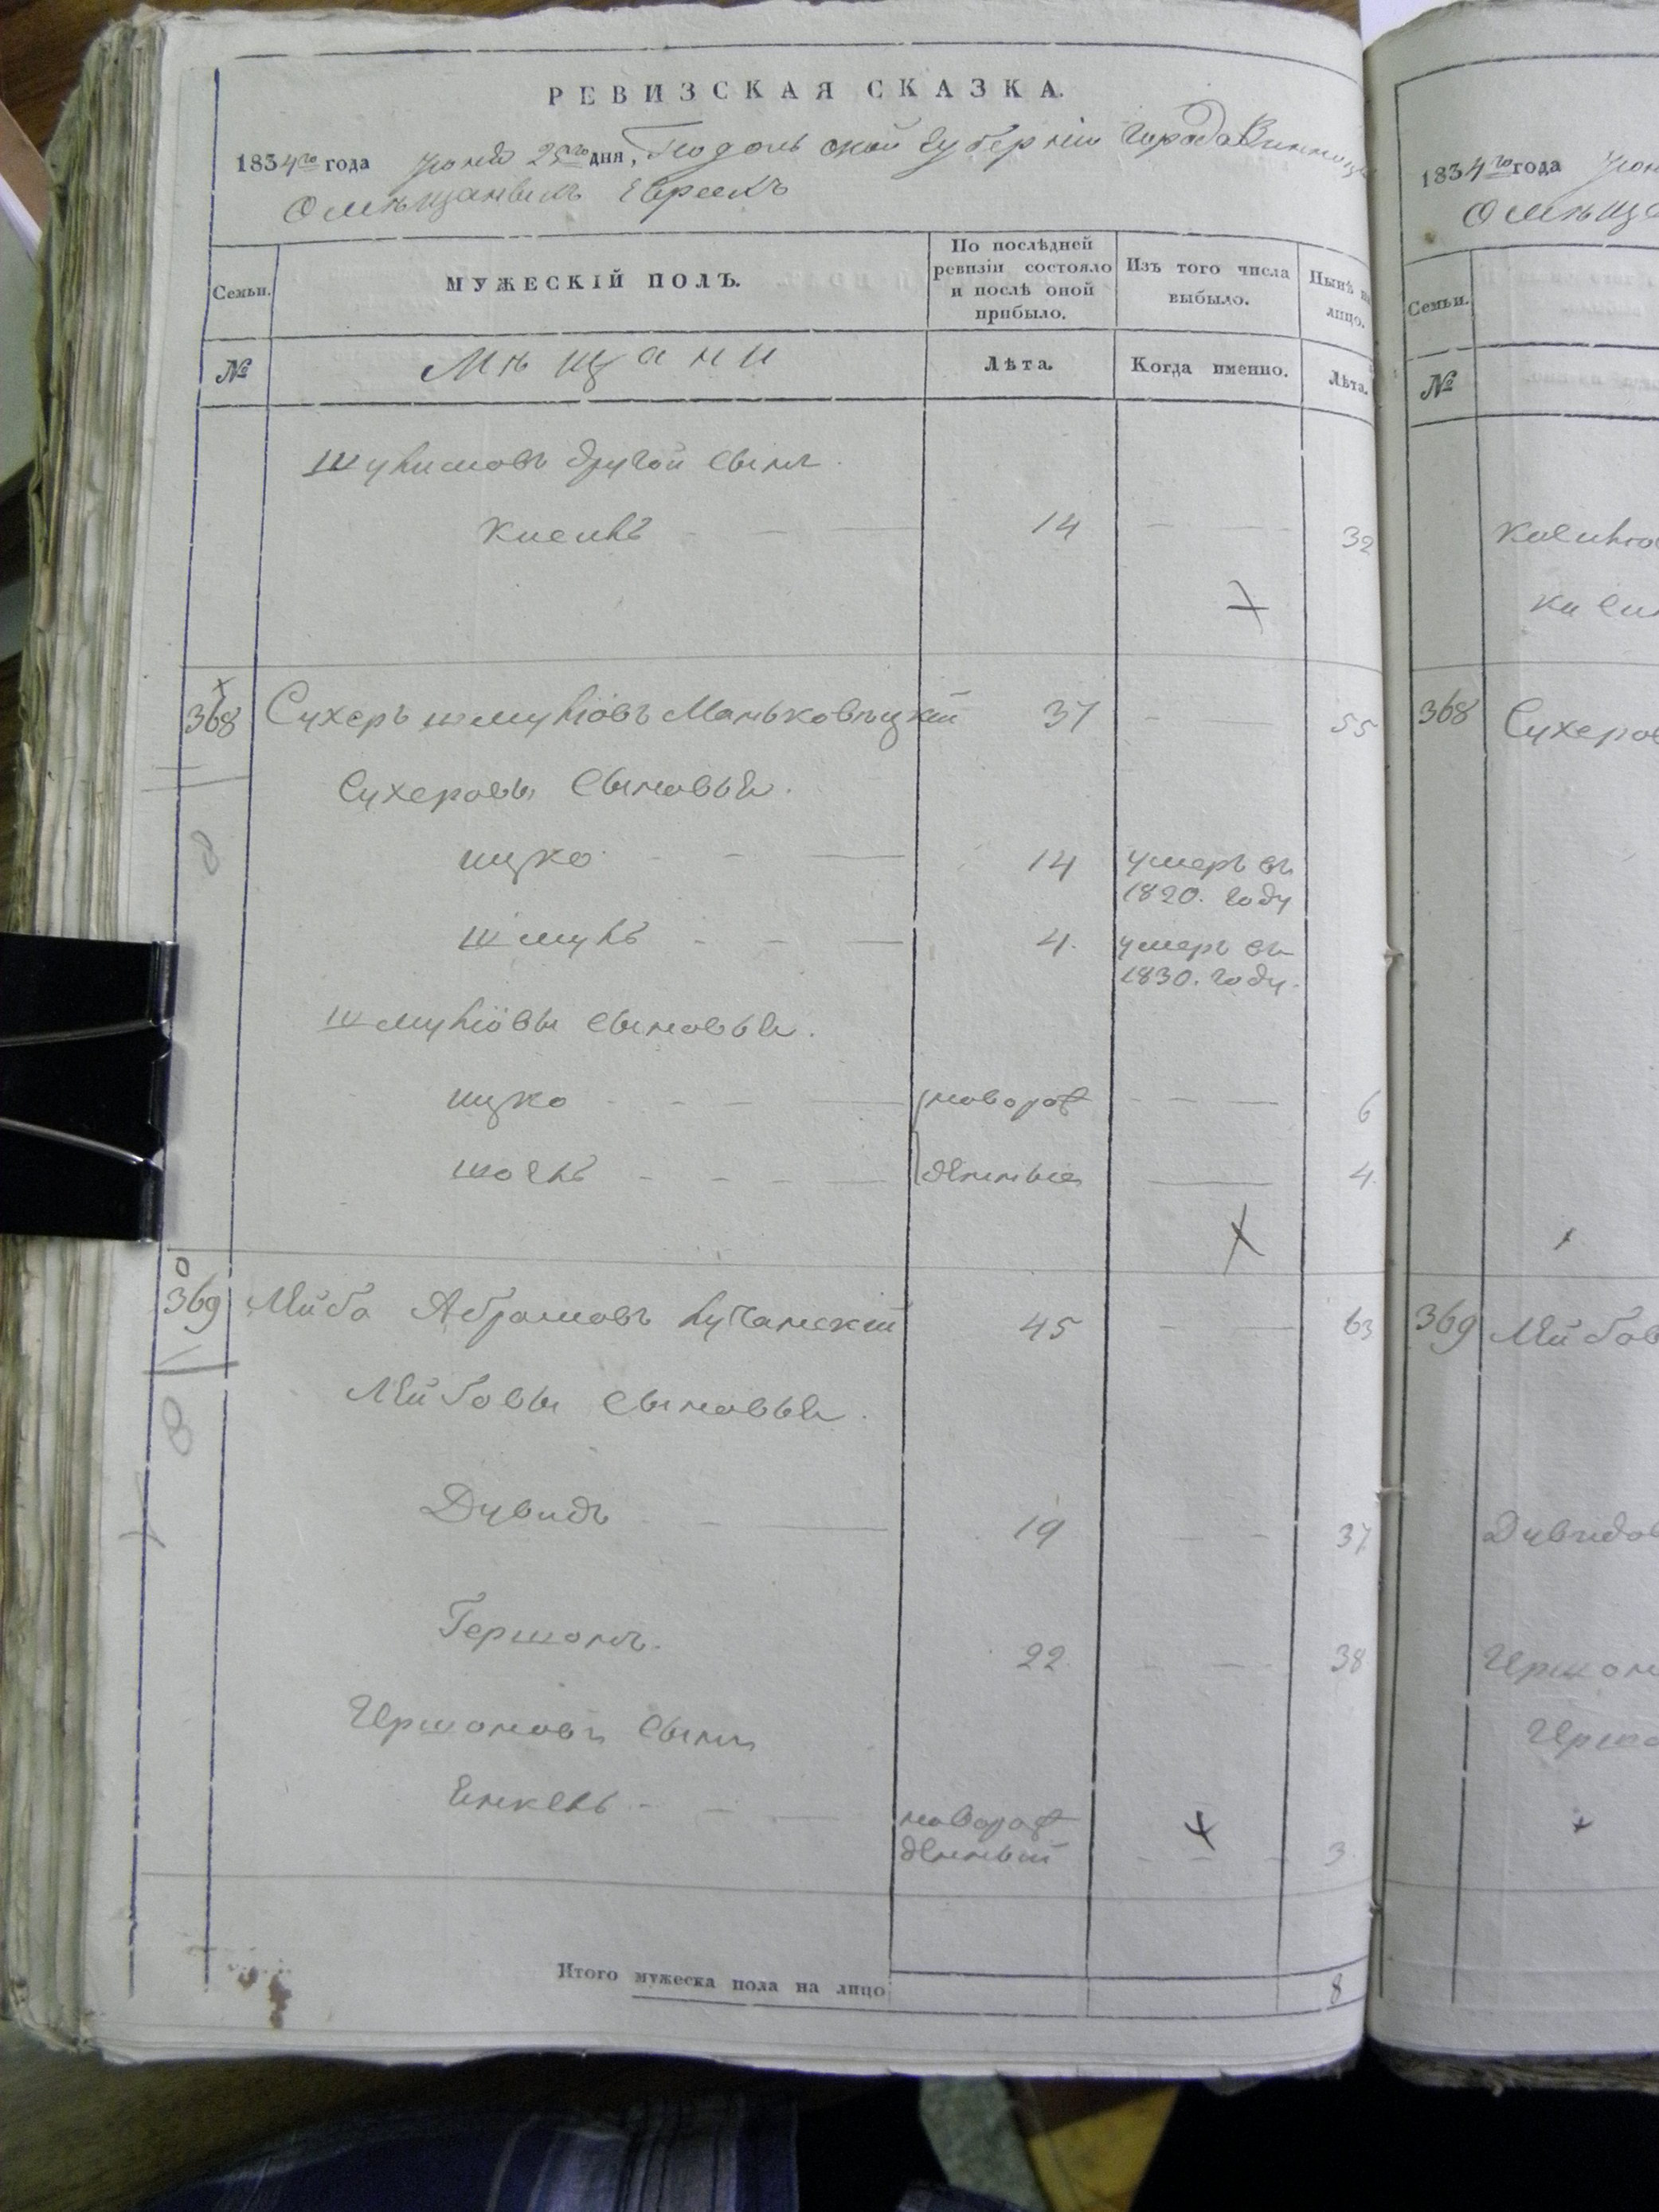 РЕВИЗСКАЯ СКАЗКА.
1834го года Юня 25го дня, Подольской Губерніи Города Винницы
О мѣщанахъ Евреяхъ
Семьи.
МУЖЕСКІЙ ПОЛЪ.
По послѣдней ревизіи состояло и послѣ оной прибыло.
Изъ того числа выбыло.
Нынѣ на лицо.
№
Мѣщани
Лѣта.
Когда именно.
Лѣта.
другой сынъ.
14 — — 32
368 Сухеръ Шмулiовъ Маньковѣцкій 37 — — 55
Сухеровы сыновья.
ицко — — 14 умеръ въ
1820. году
Шмуль - - — 4. умеръ въ
1830. году.
Шмулiовы сыновья.
ицко - - — новорож — — — 6
- - — денные —— 4.
369 Лейба Абрамовъ Лучанскій 45 — — 63
Лейбовы сыновья.
Дувидъ — — 19 — - 37
Гершонъ. 22. — — 38
Гершоновъ сынъ
Енкель - - — новорож
денный - - - 3.
Итого мужеска пола на лицо 8
1834го года
Семьи.
№
368
369